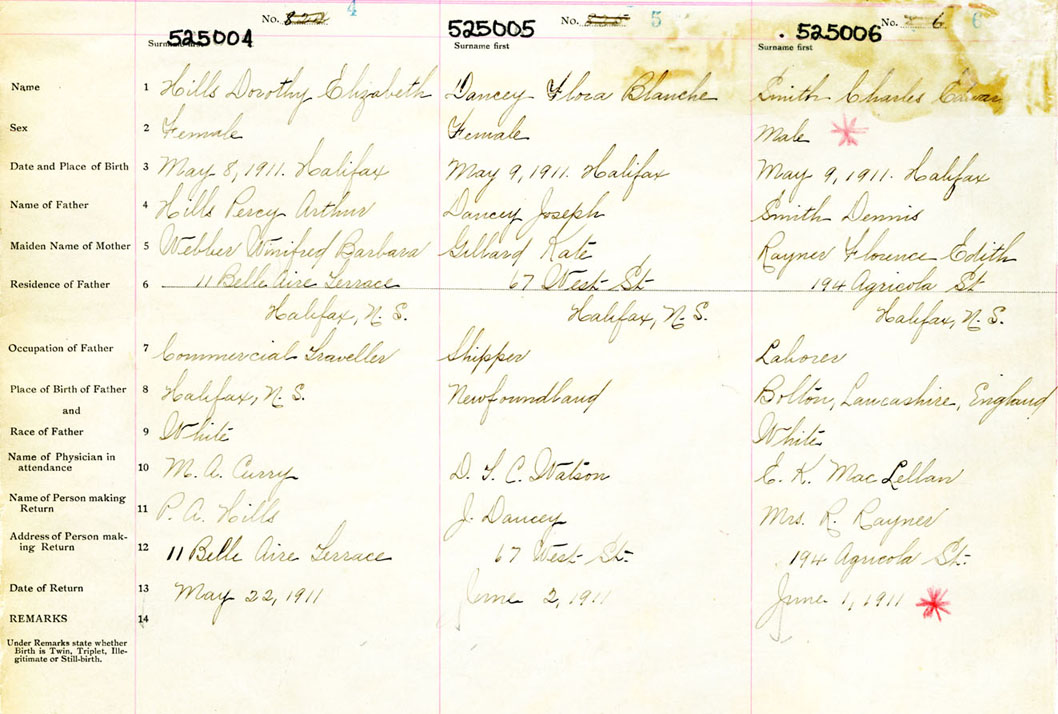 No. 4 No. 5 No. 6 6
525004 525005 525006
Surname first Surname first Surname first
Name 1 Hills Dorothy Elizabeth Dancey Flora Blanche Smith Charles
Sex 2 Female Female Male
Date and Place of Birth 3 May 8, 1911. Halifax May 9, 1911. Halifax May 9, 1911. Halifax
Name of Father 4 Hills Percy Arthur Dancey Joseph Smith Dennis
Maiden Name of Mother 5 Webber Winifred Barbara Gillard Kate Rayner Florence Edith
Residence of Father 6 11 Belle Aire Terrace 67 West St. 194 Agricola St
Halifax, N. S. Halifax, N. S. Halifax, N. S.
Occupation of Father 7 Commercial Traveller Shipper Laborer
Place of Birth of Father 8 Halifax, N. S. Newfoundland Bolton, Lancashire, England
and
Race of Father 9 White White
Name of Physician in
attendance 10 M. A. Curry D. T. C. Watson E. K. MacLellan
Name of Person making
Return 11 P. A. Hills J. Dancey Mrs. R. Rayner
Address of Person mak-
ing Return 12 11 Belle Aire Terrace 67 West St. 194 Agricola St.
Date of Return 13 May 22, 1911 June 2, 1911 June 1, 1911
REMARKS 14
Under Remarks state whether
Birth is Twin, Triplet, Ille-
gitimate or Still-birth.